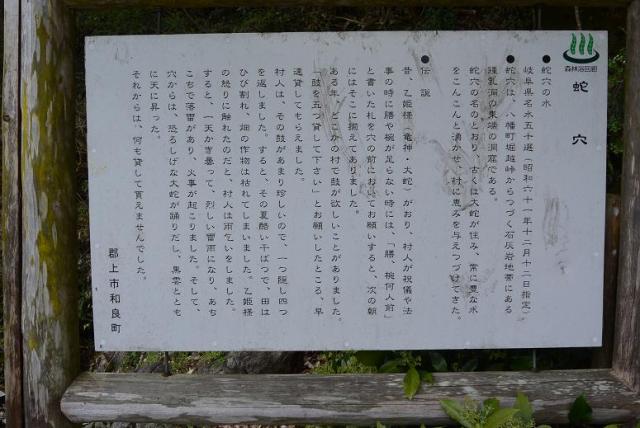 森林浴百選
蛇穴
●蛇穴の水
岐阜県名水五十選(昭和六十一年十二月十二日指定)
●蛇穴は、八幡町堀越峠からつづく石灰岩地帯にある
鍾乳洞の東端の洞窟である。
蛇穴の名のとおり、古くは大蛇が住み、常に豊な水
をこんこんと湧かせ、村に恵みを与えつづけてきた。
●伝説
昔、乙姫様(竜神・大蛇)がおり、村人が祝儀や法
事の時に膳や椀が足らない時には、「膳、椀何人前」
と書いた札を穴の前においてお願いすると、次の朝
にはそこに揃えてありました。
ある年、どこかの村で鼓が欲しいことがありました。
「鼓を五つ貸して下さい」とお願いしたところ、早
速貸してもらえました。
村人は、その鼓があまり珍しいので、一つ隠し四つ
を返しました。すると、その夏酷い干ばつで、田は
ひび割れ、畑の作物は枯れてしまいました。乙姫様
の怒りに触れたのだと、村人は雨乞いをしました。
すると、一天かき曇って、烈しい雷雨になり、あち
こちで落雷があり、火事が起こりました。そして、
穴からは、恐ろしげな大蛇が踊りだし、黒雲ととも
に天に昇った。
それからは、何も貸して貰えませんでした。
郡上市和良町